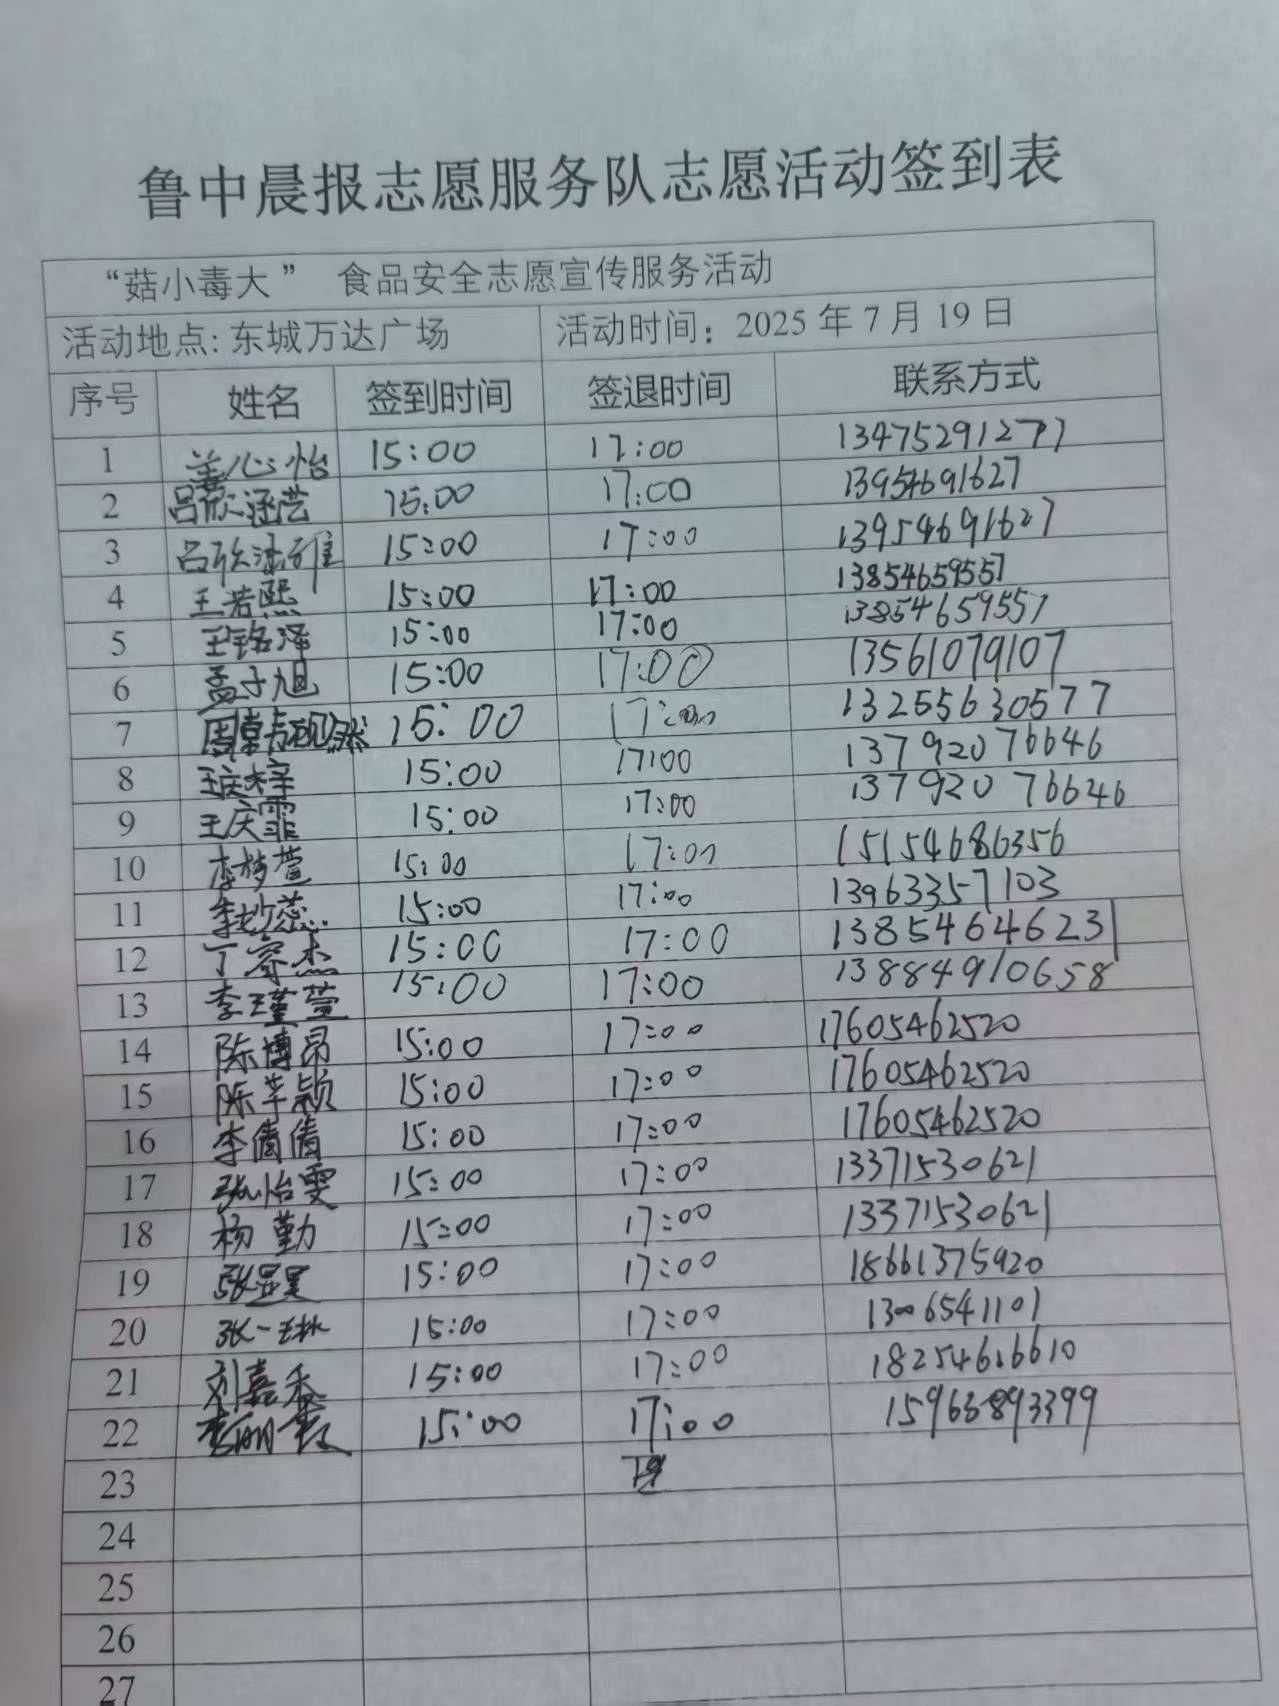 鲁中晨报志愿服务队志愿活动签到表
“菇小毒大” 食品安全志愿宣传服务活动
活动地点: 东城万达广场 活动时间: 2025 年 7 月 19 日
序号 姓名 签到时间 签退时间 联系方式
1 姜心怡 15:00 17:00 13475291277
2 吕欣涵芸 15:00 17:00 13954691627
3 吕欣涵雅 15:00 17:00 13954691627
4 王若熙 15:00 17:00 13854659557
5 王铭泽 15:00 17:00 13854659557
6 孟子旭 15:00 17:00 13561079107
7 15:00 17:00 13255630577
8 王庆梓 15:00 17:00 13792076646
9 王庆霏 15:00 17:00 13792076646
10 李梦萱 15:00 17:00 15154686356
11 李妙蕊 15:00 17:00 13963357103
12 丁睿杰 15:00 17:00 13854646231
13 李瑾萱 15:00 17:00 13884910658
14 陈博昂 15:00 17:00 17605462520
15 陈芊颖 15:00 17:00 17605462520
16 李倩倩 15:00 17:00 17605462520
17 张怡雯 15:00 17:00 13371530621
18 杨勤 15:00 17:00 13371530621
19 15:00 17:00 18661375920
20 张一琳 15:00 17:00 13006541101
21 刘嘉禾 15:00 17:00 18254616610
22 15:00 17:00 15963893399
23
24
25
26
27